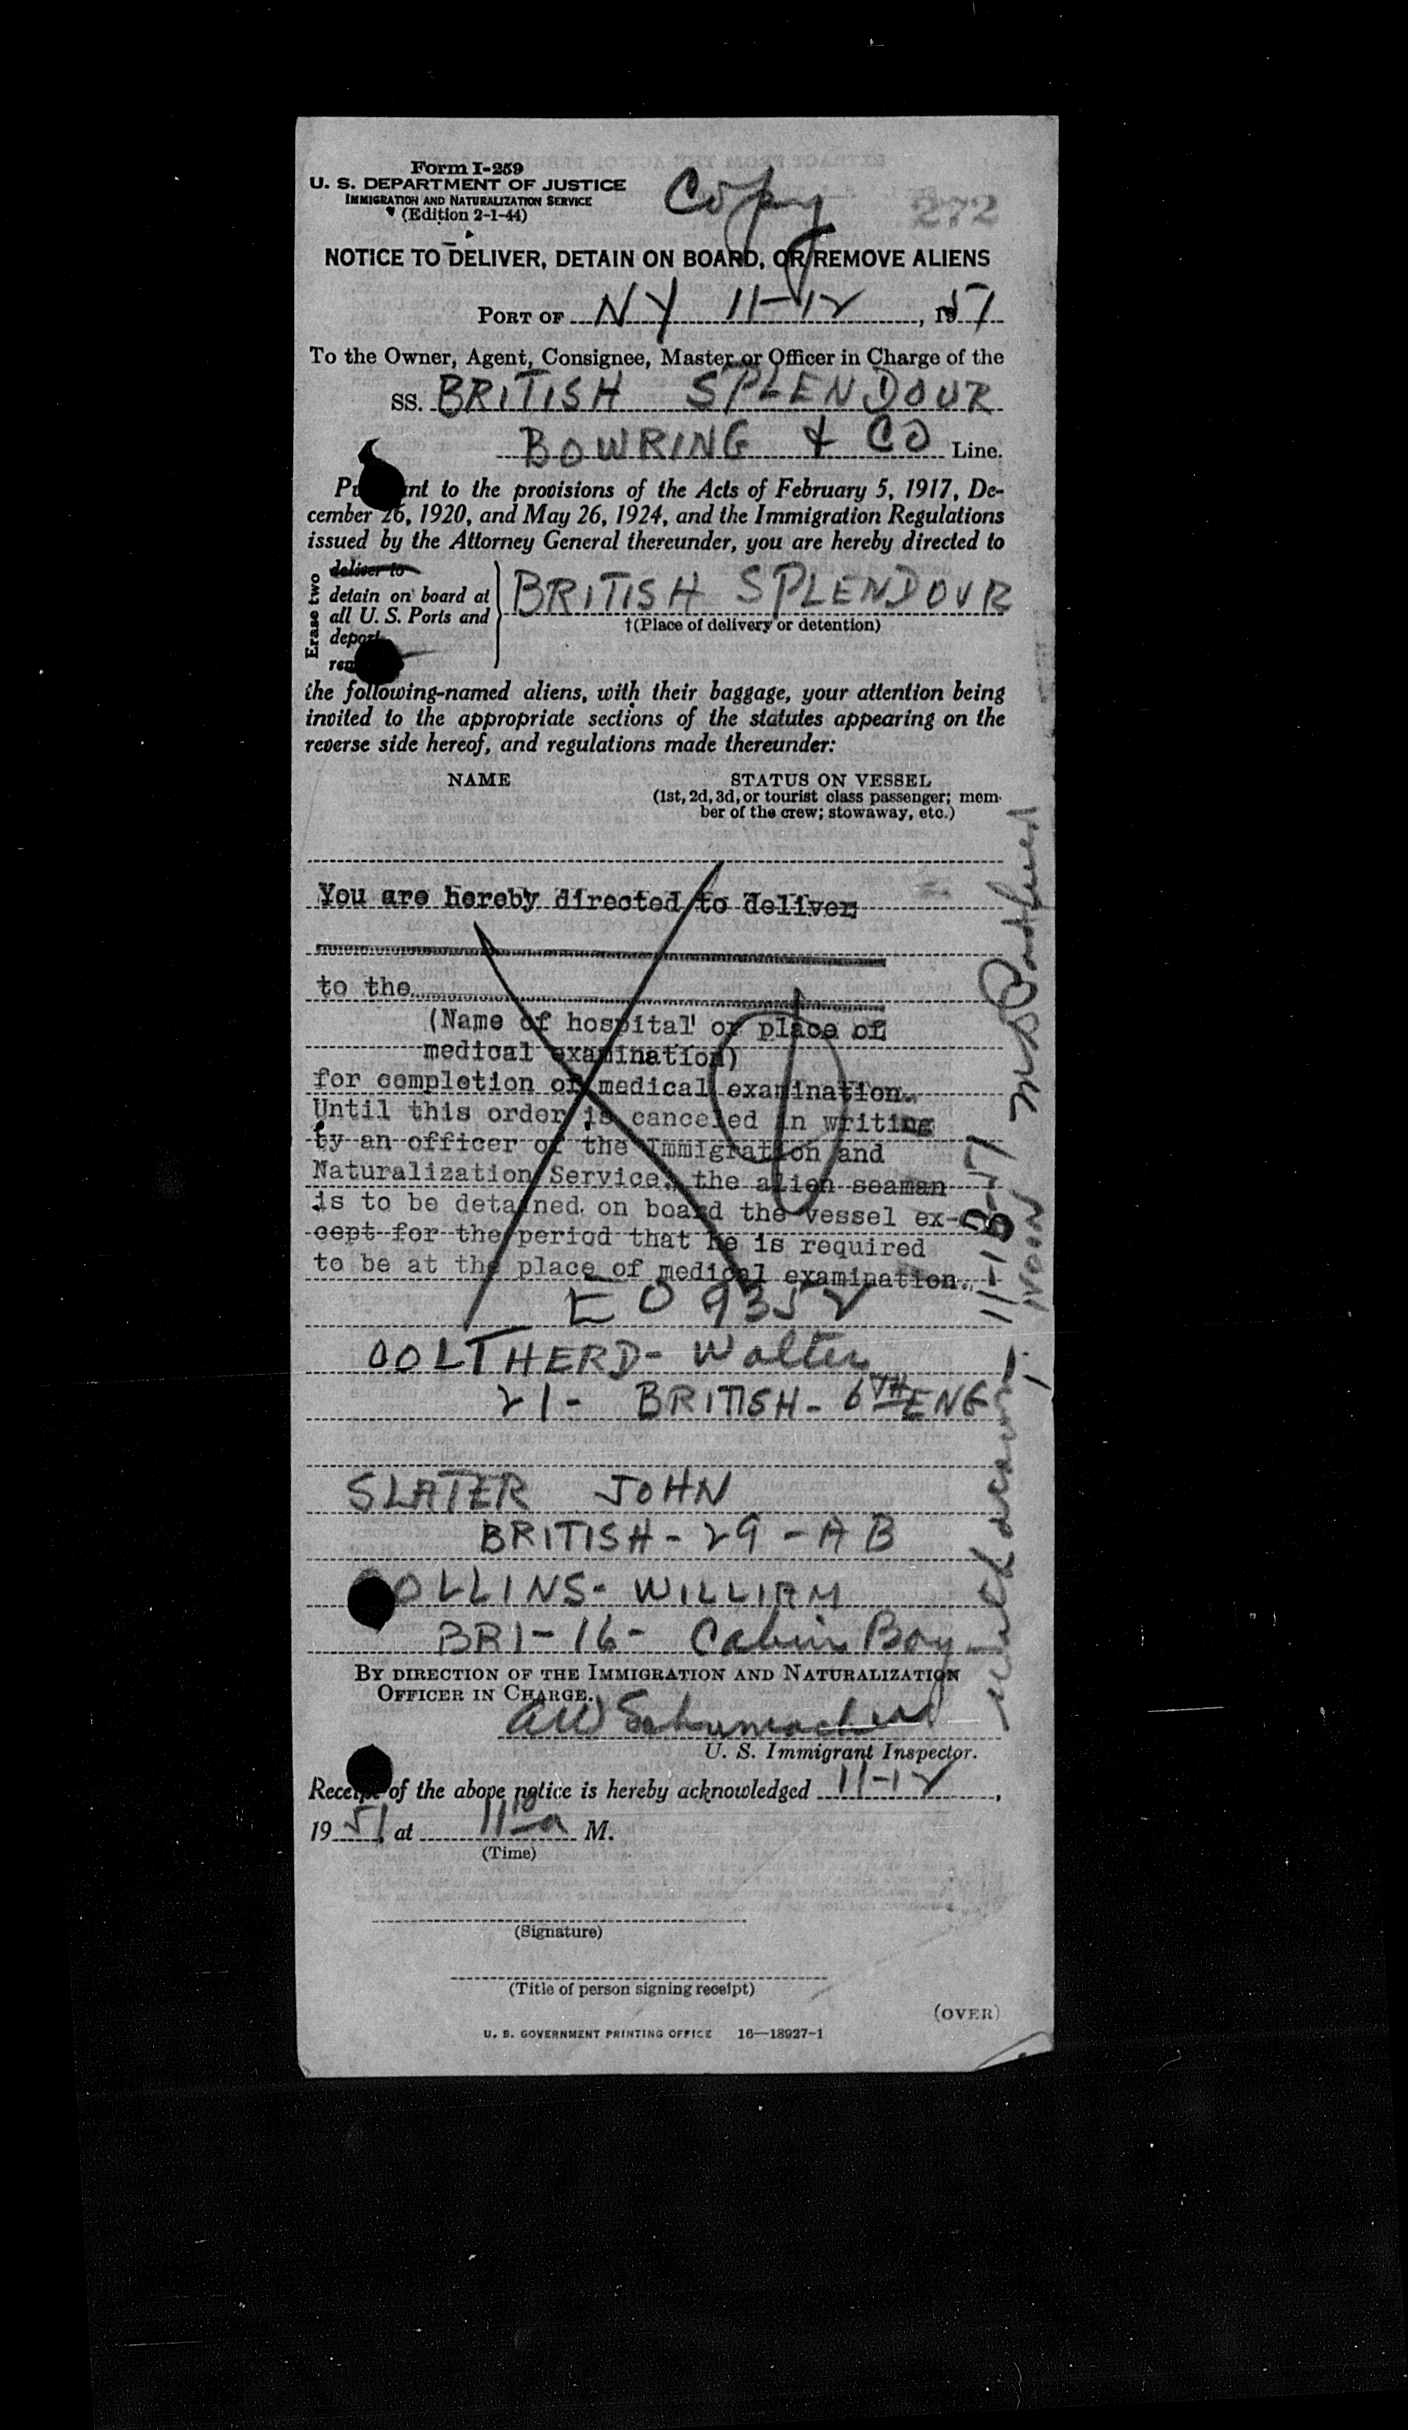 Form I-259
U. S. DEPARTMENT OF JUSTICE
IMMIGRATION AND NATURALIZATION SERVICE
(Edition 2-1-44)
Copy
272
NOTICE TO DELIVER, DETAIN ON BOARD, OR REMOVE ALIENS
PORT OF NY 11-12, 1951
To the Owner, Agent, Consignee, Master or Officer in Charge of the
SS. BRITISH SPLENDOUR
BOWRING & CO Line.
nt to the provisions of the Acts of February 5, 1917, De-
cember 26, 1920, and May 26, 1924, and the Immigration Regulations
issued by the Attorney General thereunder, you are hereby directed to
Erase two
deliver to
detain on board at
all U. S. Ports and
deport
BRITISH SPLENDOUR
†(Place of delivery or detention)
the following-named aliens, with their baggage, your attention being
invited to the appropriate sections of the statutes appearing on the
reverse side hereof, and regulations made thereunder:
NAME
STATUS ON VESSEL
(1st, 2d, 3d, or tourist class passenger; mem-
ber of the crew; stowaway, etc.)
You are hereby directed to deliver
to the
(Name of hospital or place of
medical examination)
for completion of medical examination.
Until this order is canceled in writing
by an officer of the Immigration and
Naturalization Service, the alien seaman
is to be detained on board the vessel ex-
cept for the period that he is required
to be at the place of medical examination.
EO 9352
OOLTHERD- Walter
21- BRITISH- 6TH ENG
SLATER JOHN
BRITISH- 29 - AB
COLLINS- WILLIAM
BRI- 16- Cabin Boy
BY DIRECTION OF THE IMMIGRATION AND NATURALIZATION
OFFICER IN CHARGE.
AW Schumacher
U. S. Immigrant Inspector.
Receipt of the above notice is hereby acknowledged 11-12,
1951 at 11 10 a M.
(Time)
(Signature)
(Title of person signing receipt)
(OVER)
U. S. GOVERNMENT PRINTING OFFICE 16—18927-1
Noon